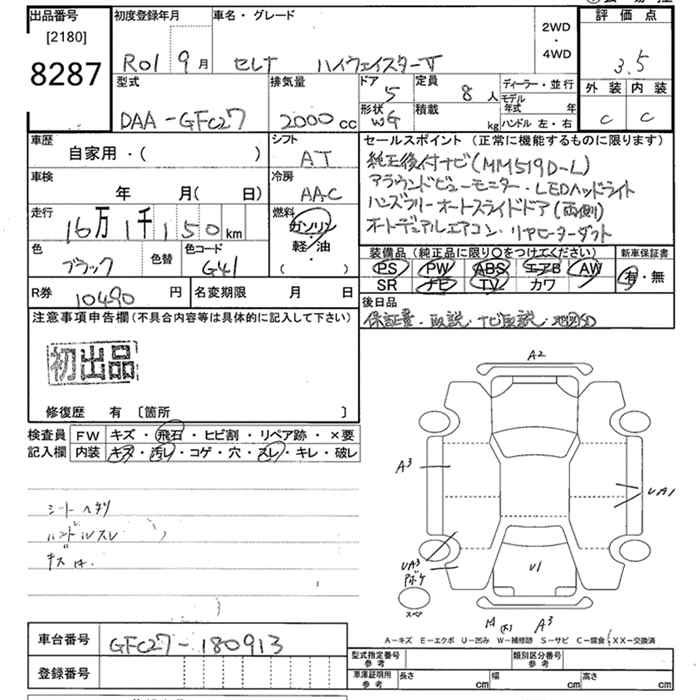 出品番号
[2180]
8287
初度登録年月
R01 9月
車名・グレード
セレナ ハイウェイスターV
2WD
・
4WD
評価点
3.5
外装 内装
C C
型式
DAA-GFC27
排気量
2000cc
ドア
5
形状
WG
定員
8人
積載
kg
ディーラー・並行
モデル年式 年
ハンドル 左・右
車歴
自家用・( )
シフト
AT
車検
年 月( 日)
冷房
AAC
走行
16万1千150km
燃料
ガソリン
軽・油
( )
色
ブラック
色替
色コード
G41
R券 10490円
名変期限 月 日
セールスポイント (正常に機能するものに限ります)
純正後付ナビ(MM519D-L)
アラウンドビューモニター・LEDヘッドライト
ハンズフリーオートスライドドア(両側)
オートデュアルエアコン・リヤヒーターダクト
装備品(純正品に限り○をつけてください)
PS PW ABS エアB AW
SR ナビ TV カワ
新車保証書
有・無
後日品
保証書・取説・ナビ取説・地図SD
注意事項申告欄(不具合内容等は具体的に記入して下さい)
初出品
修復歴 有 [箇所 ]
検査員
記入欄
FW キズ・飛石・ヒビ割・リペア跡・×要
内装 キズ・汚レ・コゲ・穴・スレ・キレ・破レ
シートヘタリ
ハンドルスレ
キズ
A2
A3
UA1
UA3
U1
スペア
A3
A-キズ E-エクボ U-凹み W-補修跡 S-サビ C-腐食 XX-交換済
車台番号 GFC27-180913
登録番号
型式指定番号
参考
類別区分番号
参考
車庫証明用
参考
長さ cm 幅 cm 高さ cm